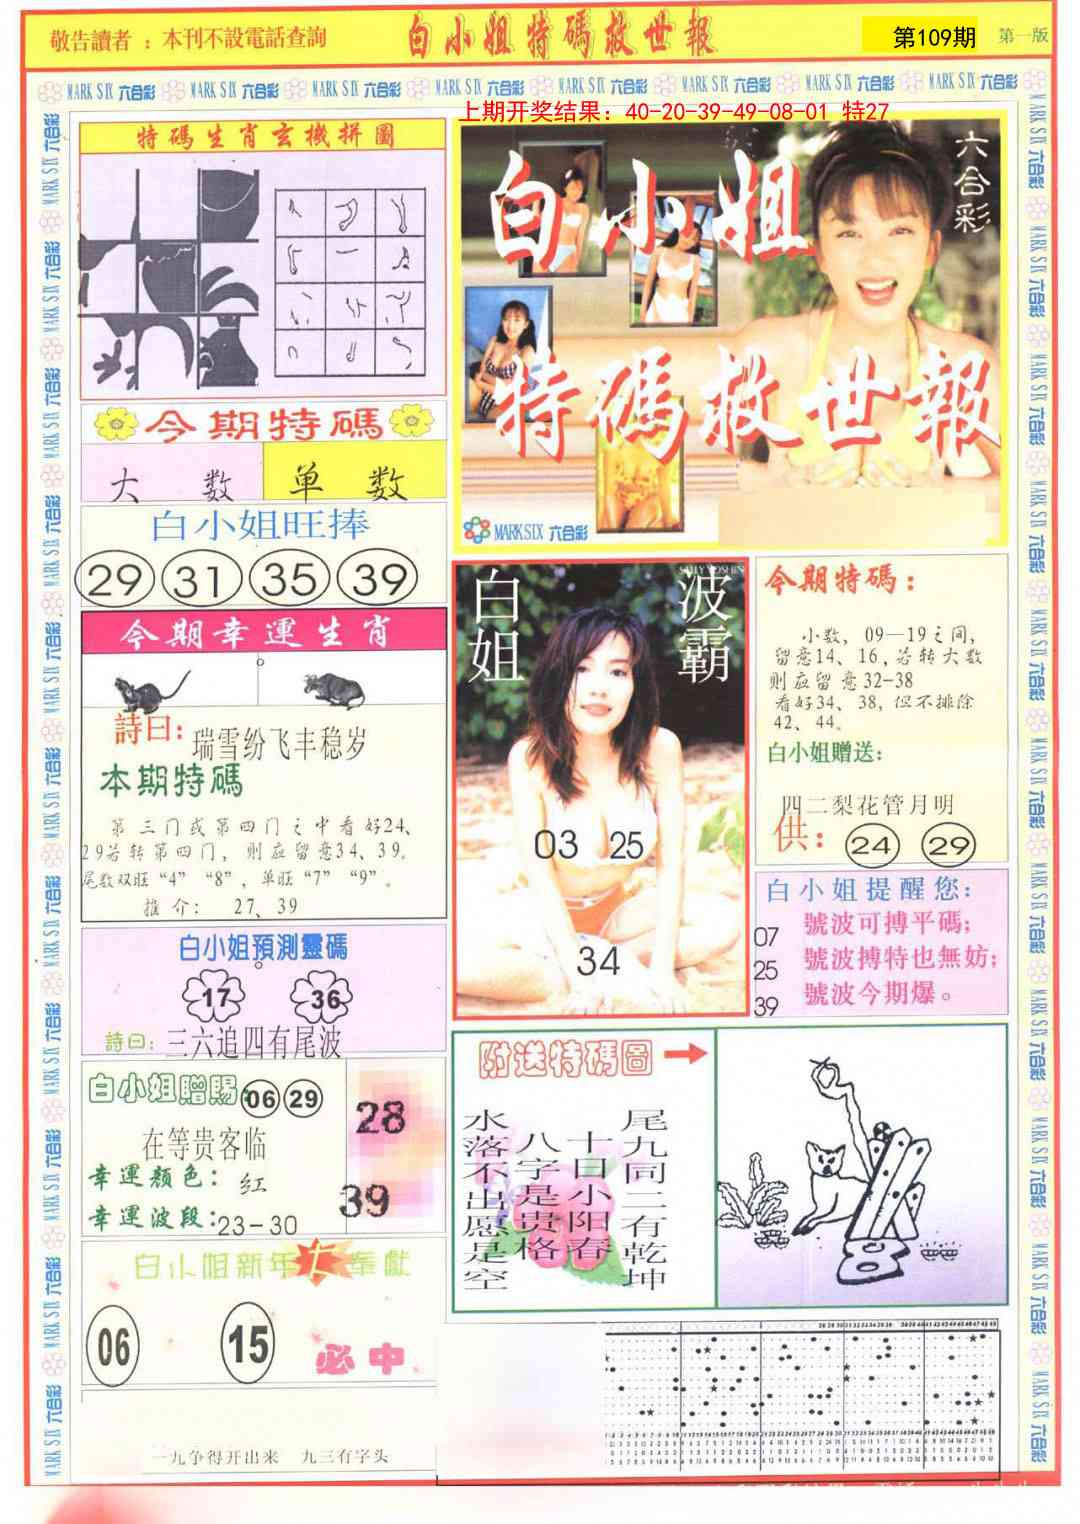 敬告讀者 ：本刊不設電話查詢
白小姐特碼救世報
第109期
第一版
MARK SIX 六合彩 MARK SIX 六合彩 MARK SIX 六合彩 MARK SIX 六合彩 MARK SIX 六合彩 MARK SIX 六合彩 MARK SIX 六合彩 MARK SIX 六合彩
上期开奖结果：40-20-39-49-08-01 特27
特碼生肖玄機拼圖
六合彩
白小姐
特碼救世報
MARK SIX 六合彩
今期特碼
大 数 单 数
白小姐旺捧
29 31 35 39
今期幸運生肖
詩曰:
瑞雪纷飞丰稳岁
本期特碼
第三门或第四门之中看好24、
29若转第四门，则应留意34、39。
尾数双旺“4” “8”，单旺“7” “9”。
推介： 27、39
白姐
波霸
03 25
34
今期特碼：
小数，09—19之间，
留意14、16，若转大数
则应留意32-38
看好34、38，但不排除
42、44。
白小姐贈送:
四二梨花管月明
供：
24 29
白小姐提醒您：
07 號波可搏平碼；
25 號波搏特也無妨；
39 號波今期爆。
白小姐預測靈碼
17 36
詩曰:
三六追四有尾波
白小姐贈賜:
06 29
在等贵客临
幸運顏色：红
幸運波段:23-30
28
39
白小姐新年大奉獻
06 15
必中
一九争得开出来 九三有字头
附送特碼圖
尾九同二有乾坤
十日小阳春
八字是贵格
水落不出愿是空